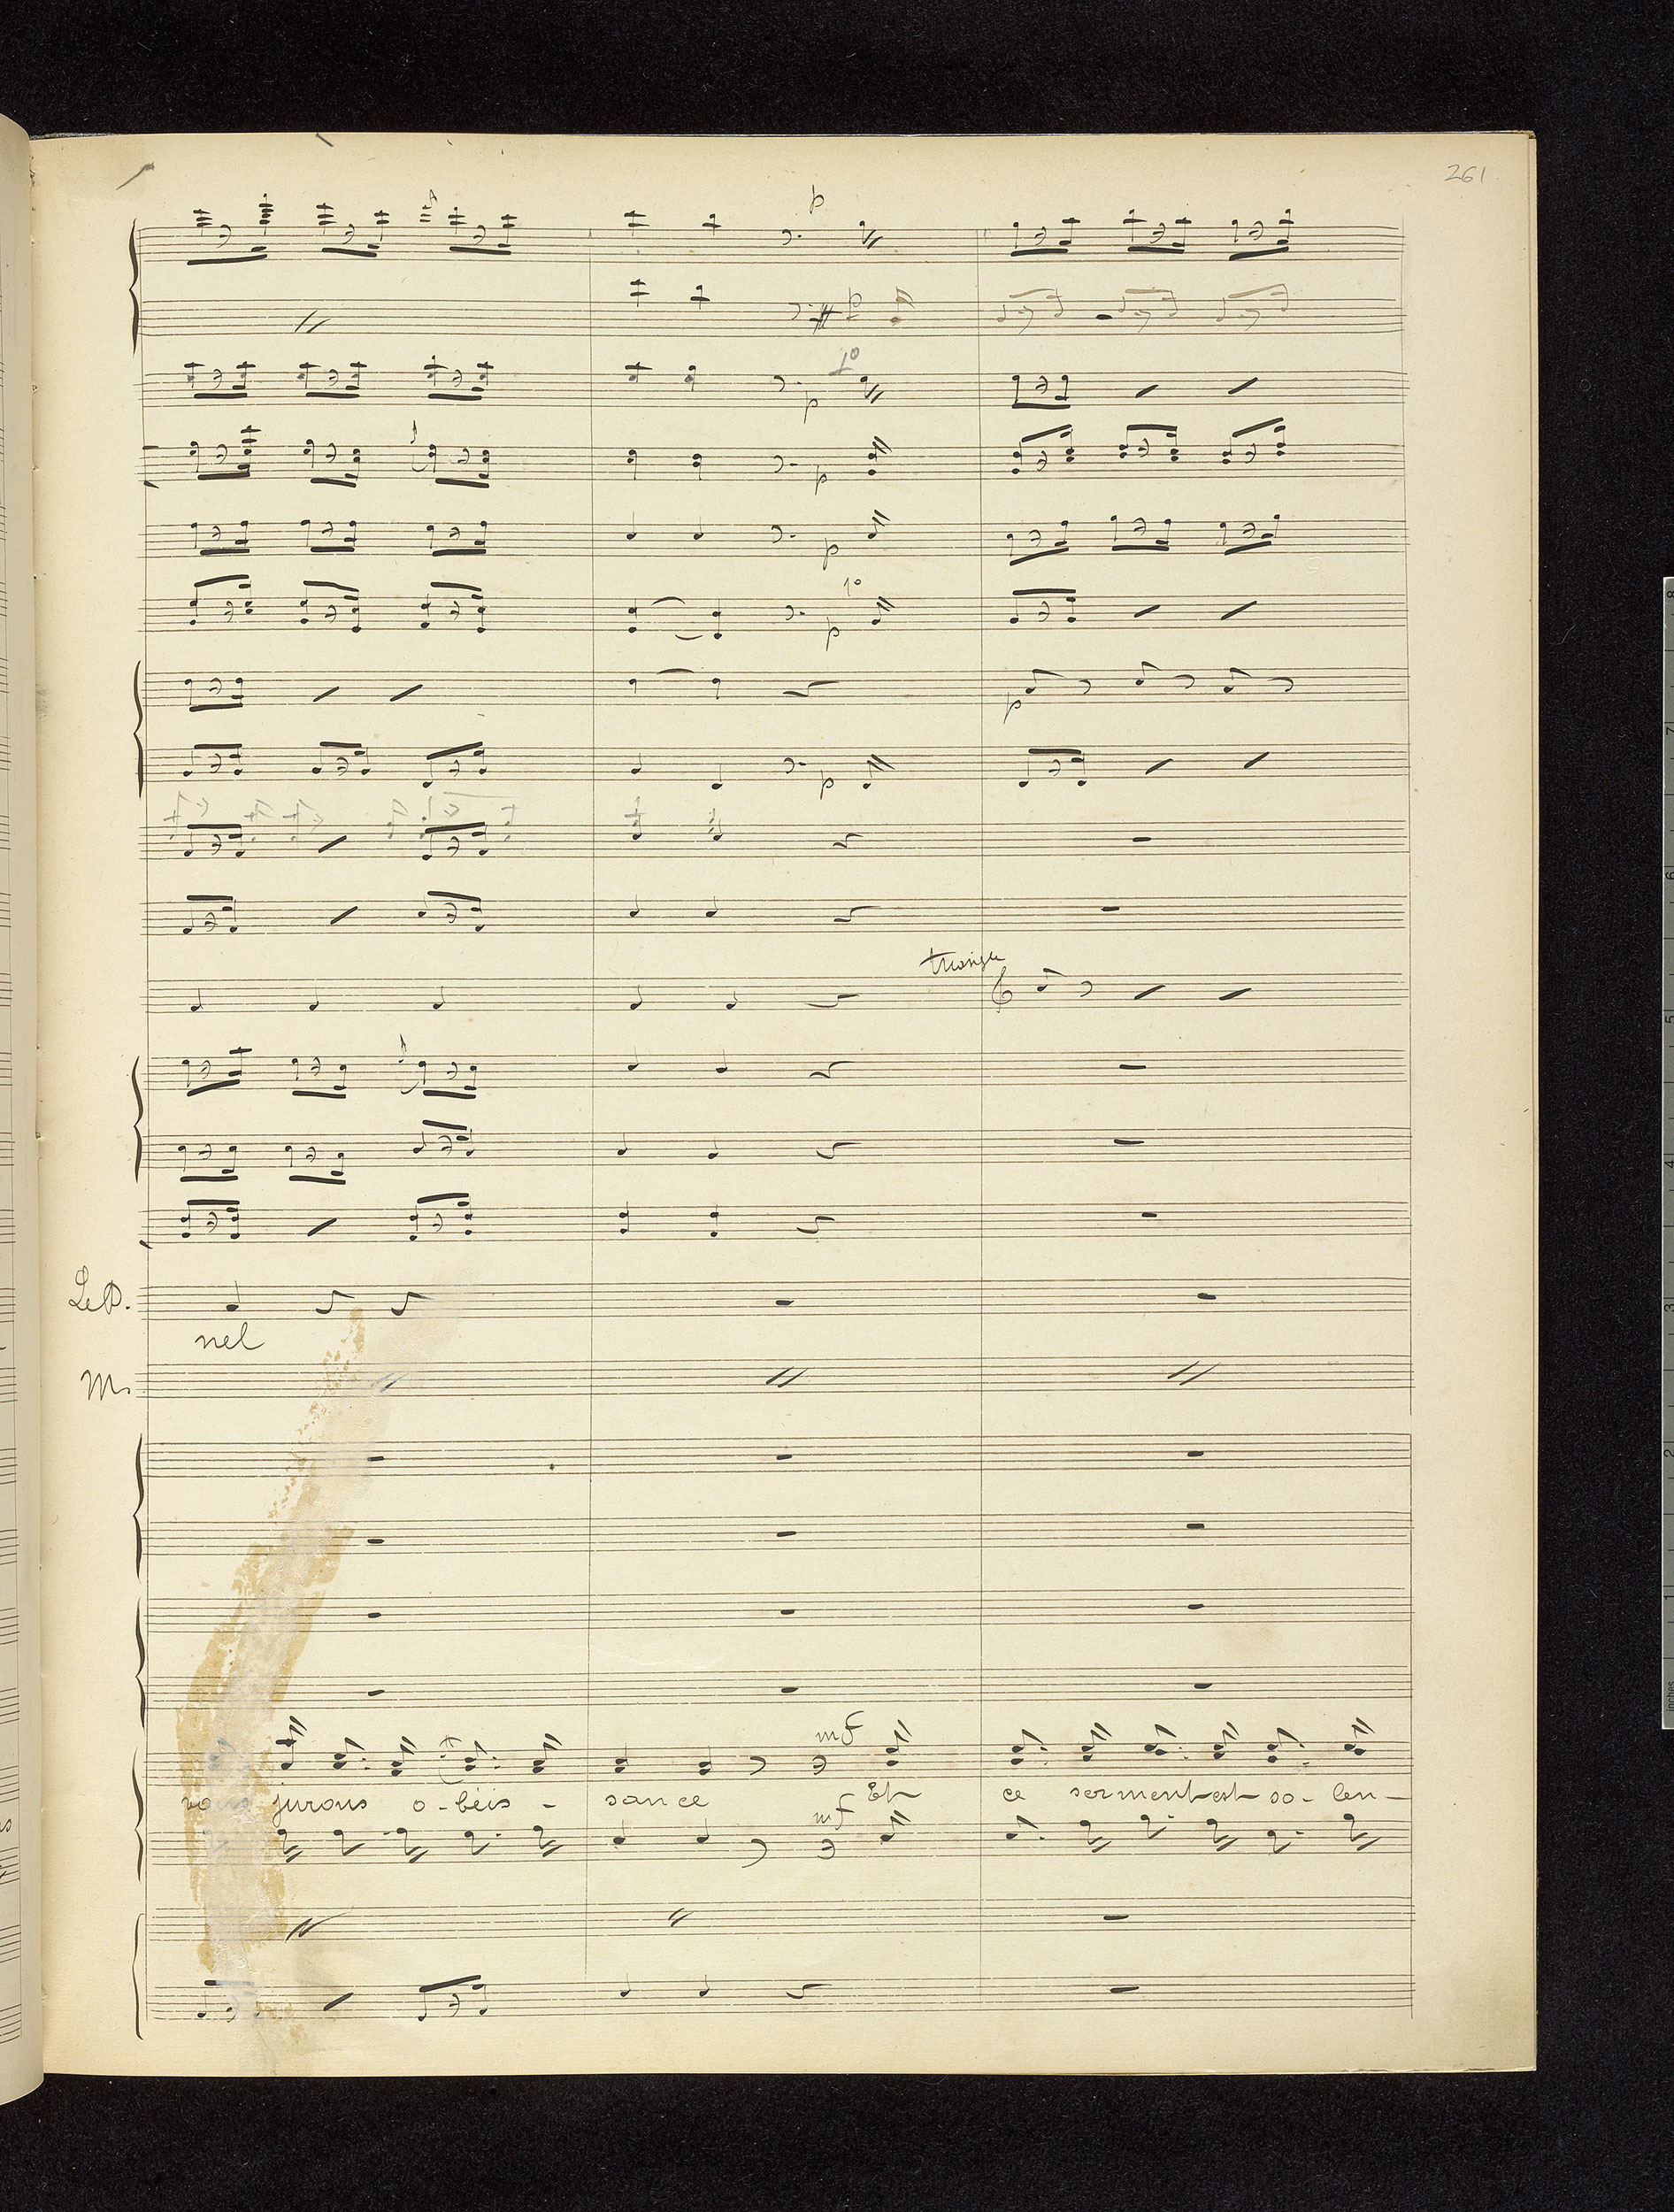 261
p
p
1º
p
p
p
1º
p
p
p
triangle
Le P.
nel
M.
mf
vous jurons o-béis-sance Et ce serment est so-len-
mf
8
7
6
5
4
3
2
1
inches